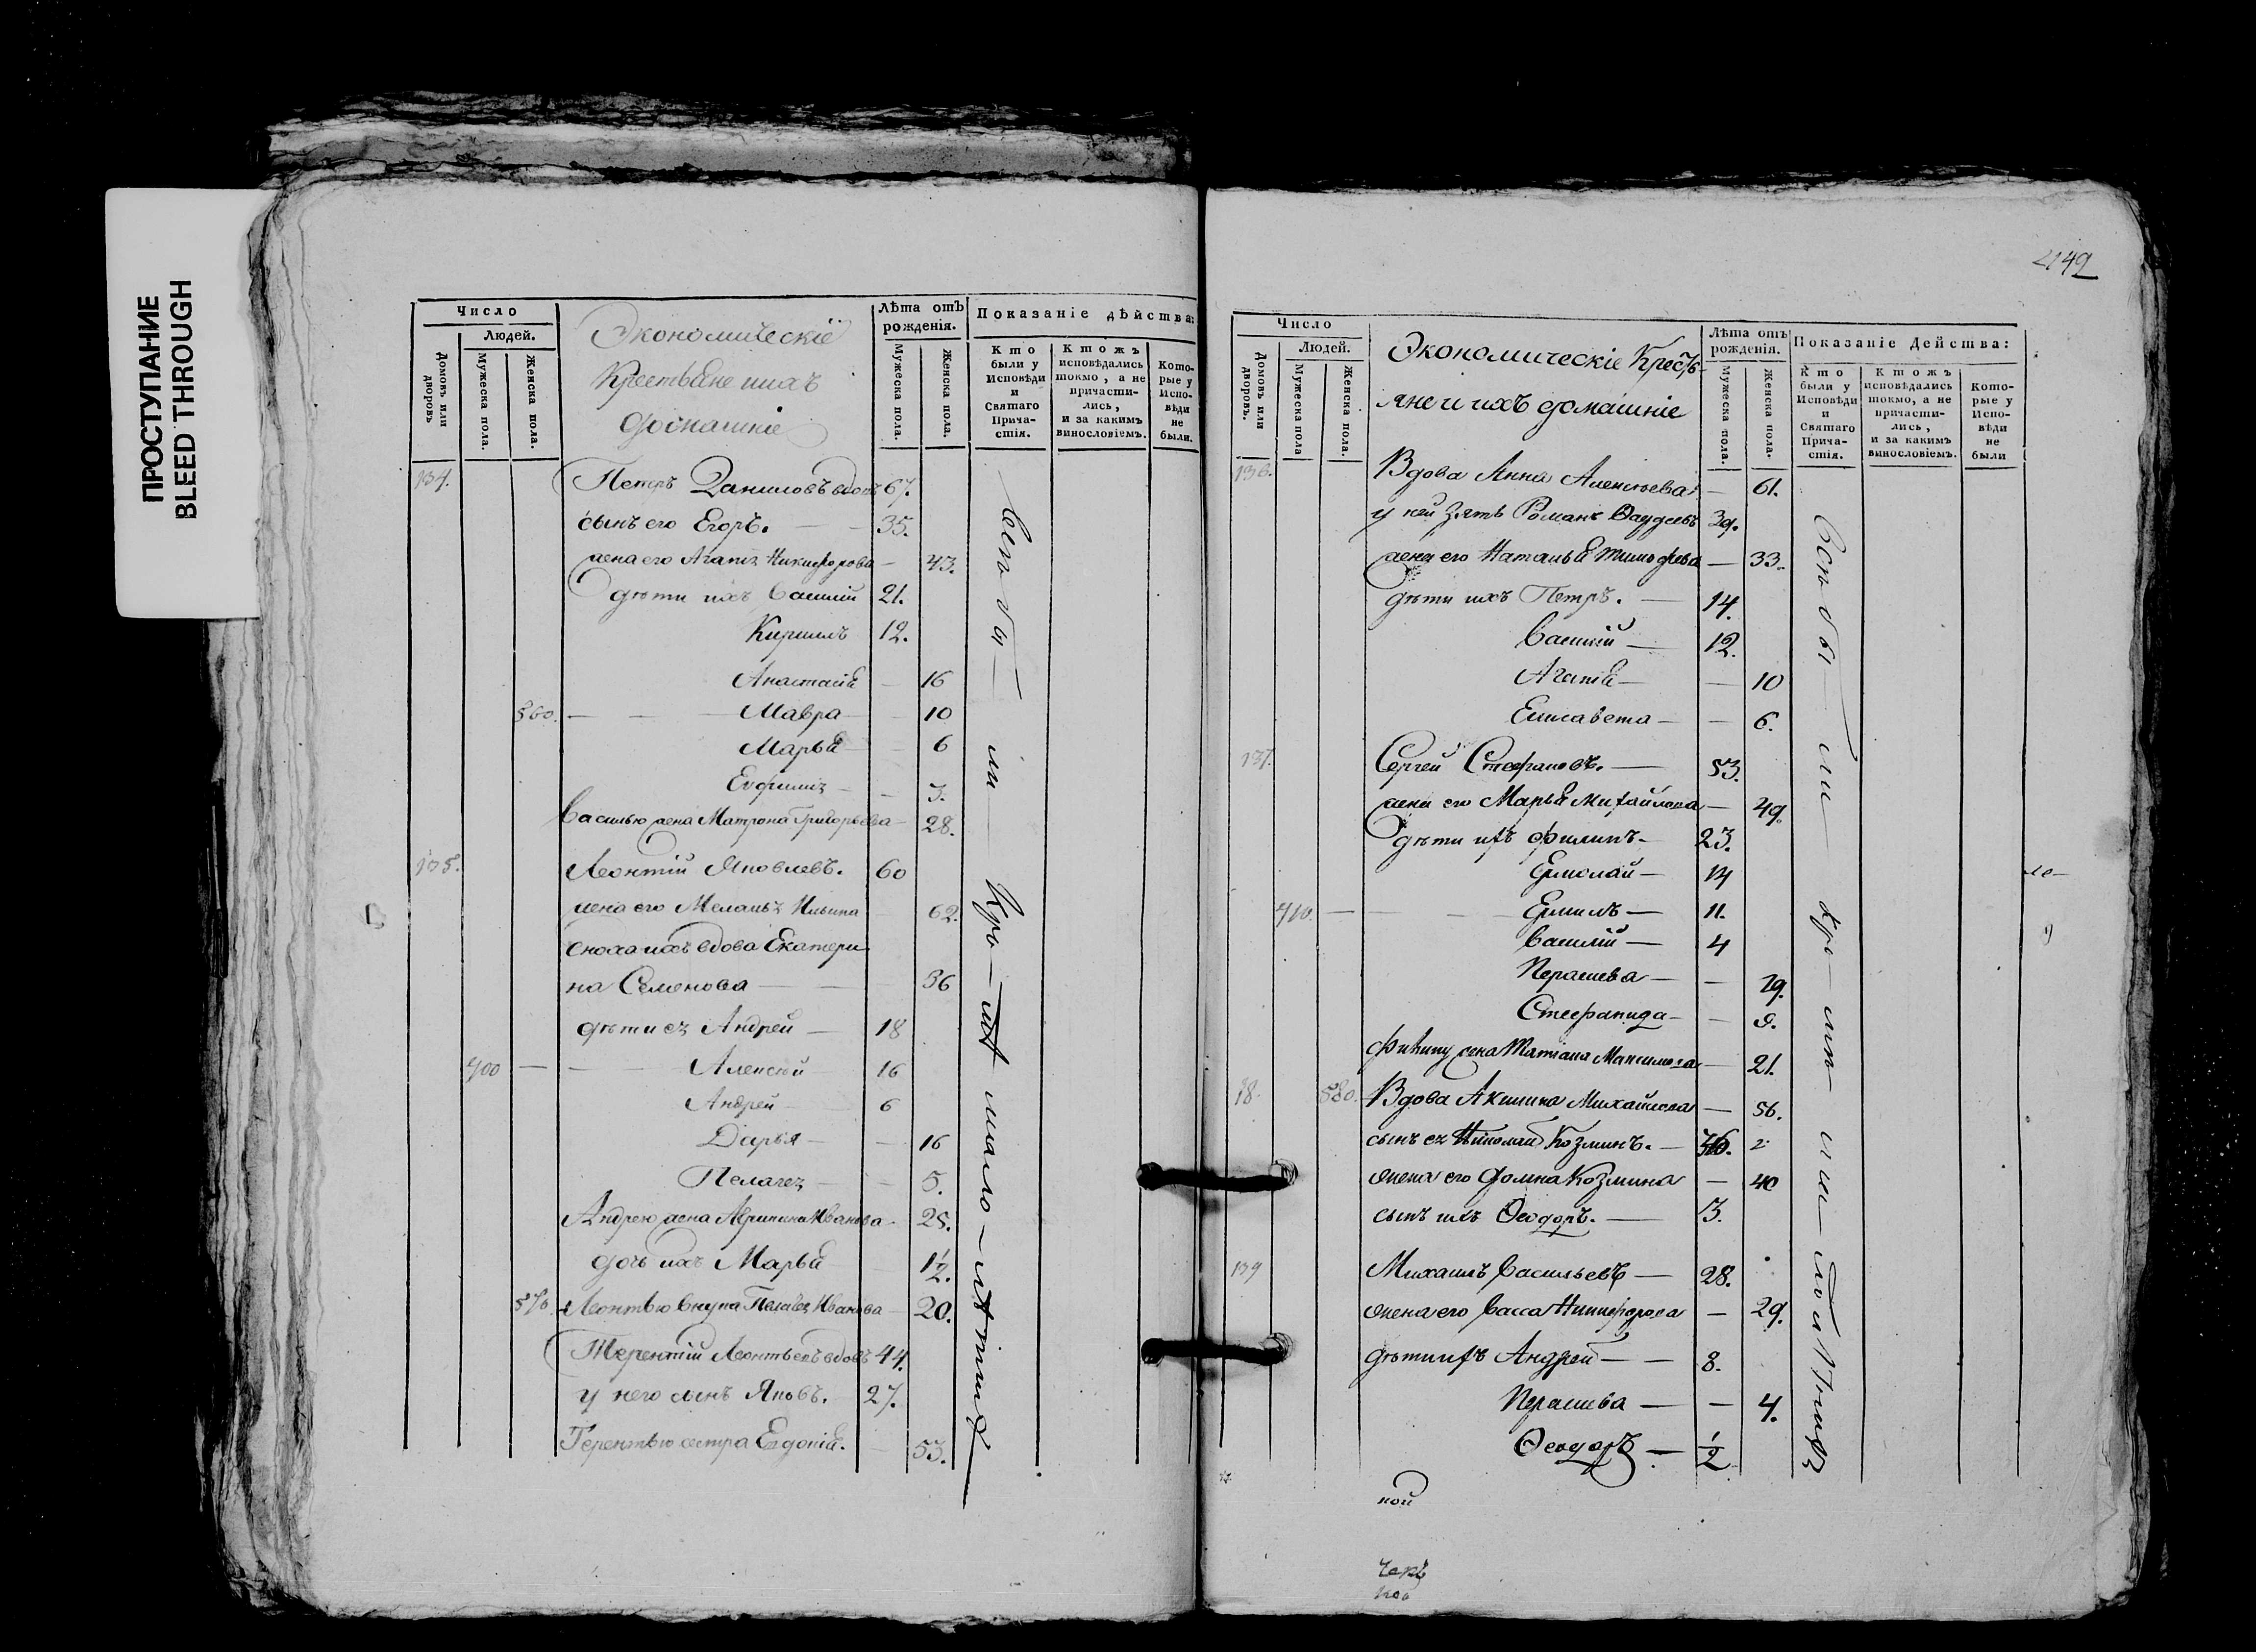 ПРОСТУПАНИЕ
BLEED THROUGH
Число
Людей.
Домовъ или дворовъ
Мужеска пола.
Женска пола.
Экономическіе
Крестьяне и ихъ
домашніе
Лѣта отъ рожденія.
Мужеска пола.
Женска пола.
Показаніе дѣйства:
Кто были у Исповѣди и Святаго Прича-стія.
Ктожъ исповѣдались токмо, а не причасти-лись, и за какимъ винословіемъ.
Кото-рые у Испо-вѣди не были.
134. Петръ Даниловъ вдовъ 67.
сынъ его Егоръ. — 35.
жена его Агапія Никифорова — 43.
дѣти ихъ Василій 21.
Кирилъ 12.
Анастасія — 16
560. — Мавра — 10
Марья — 6
Евфимія — 3.
Василью жена Матрона Григорьева — 28.
135. Леонтій Яковлевъ. 60
жена его Меланья Ильина 62.
сноха ихъ вдова Екатери
на Семенова — 36
дѣти ея Андрей — 18
400 — Алексѣй 16
Андрей — 6
Дарья — 16
Пелагея — 5.
Андрею жена Акрипина Иванова — 25.
дочь ихъ Марья 1/2.
570. Леонтью внука Пелагея Иванова — 20.
Терентій Леонтьевъ вдовъ 44.
у него сынъ Яковъ. 27.
Терентью сестра Евдокія. — 53.
Всѣ бы — ли — Кро — мѣ мало — лѣтныхъ
449
Число
Людей.
Домовъ или дворовъ.
Мужеска пола
Женска пола.
Экономическіе Кресть
яне и ихъ домашніе
Лѣта отъ рожденія.
Мужеска пола.
Женска пола.
Показаніе Действа:
Кто были у Исповѣди и Святаго Прича-стія.
Ктожъ исповѣдались токмо, а не причасти-лись, и за какимъ винословіемъ.
Кото-рые у Испо-вѣди не были
136. Вдова Анна Алексѣева — 61.
у ней зять Романъ Ѳаддеевъ 39.
жена его Наталья Тимофѣева — 33.
дѣти ихъ Петръ. — 14.
Василій — 12.
Агапія — 10
Елисавета — 6.
137. Сергей Стефановъ. — 53.
жена его Марья Михайлова — 49.
дѣти ихъ Филипъ — 23.
Ермолай — 14
410. — Ермилъ — 11.
Василій — 4
Парасѣева — 19.
Стефанида — 9.
Филипу жена Татіана Максимова — 21.
18. 580. Вдова Акилина Михайлова — 56.
сынъ ея Николай Козминъ. — 36.
жена его Домна Козмина — 40
сынъ ихъ Ѳеодоръ. — 3.
139 Михаилъ Васильевъ — 28.
жена его Васса Никифорова — 29.
дѣти ихъ Андрей — 8.
Парасѣева — 4.
Ѳеодоръ — 1/2
Всѣ бы — ли — кро — мѣ ма — лолѣтныхъ
ной